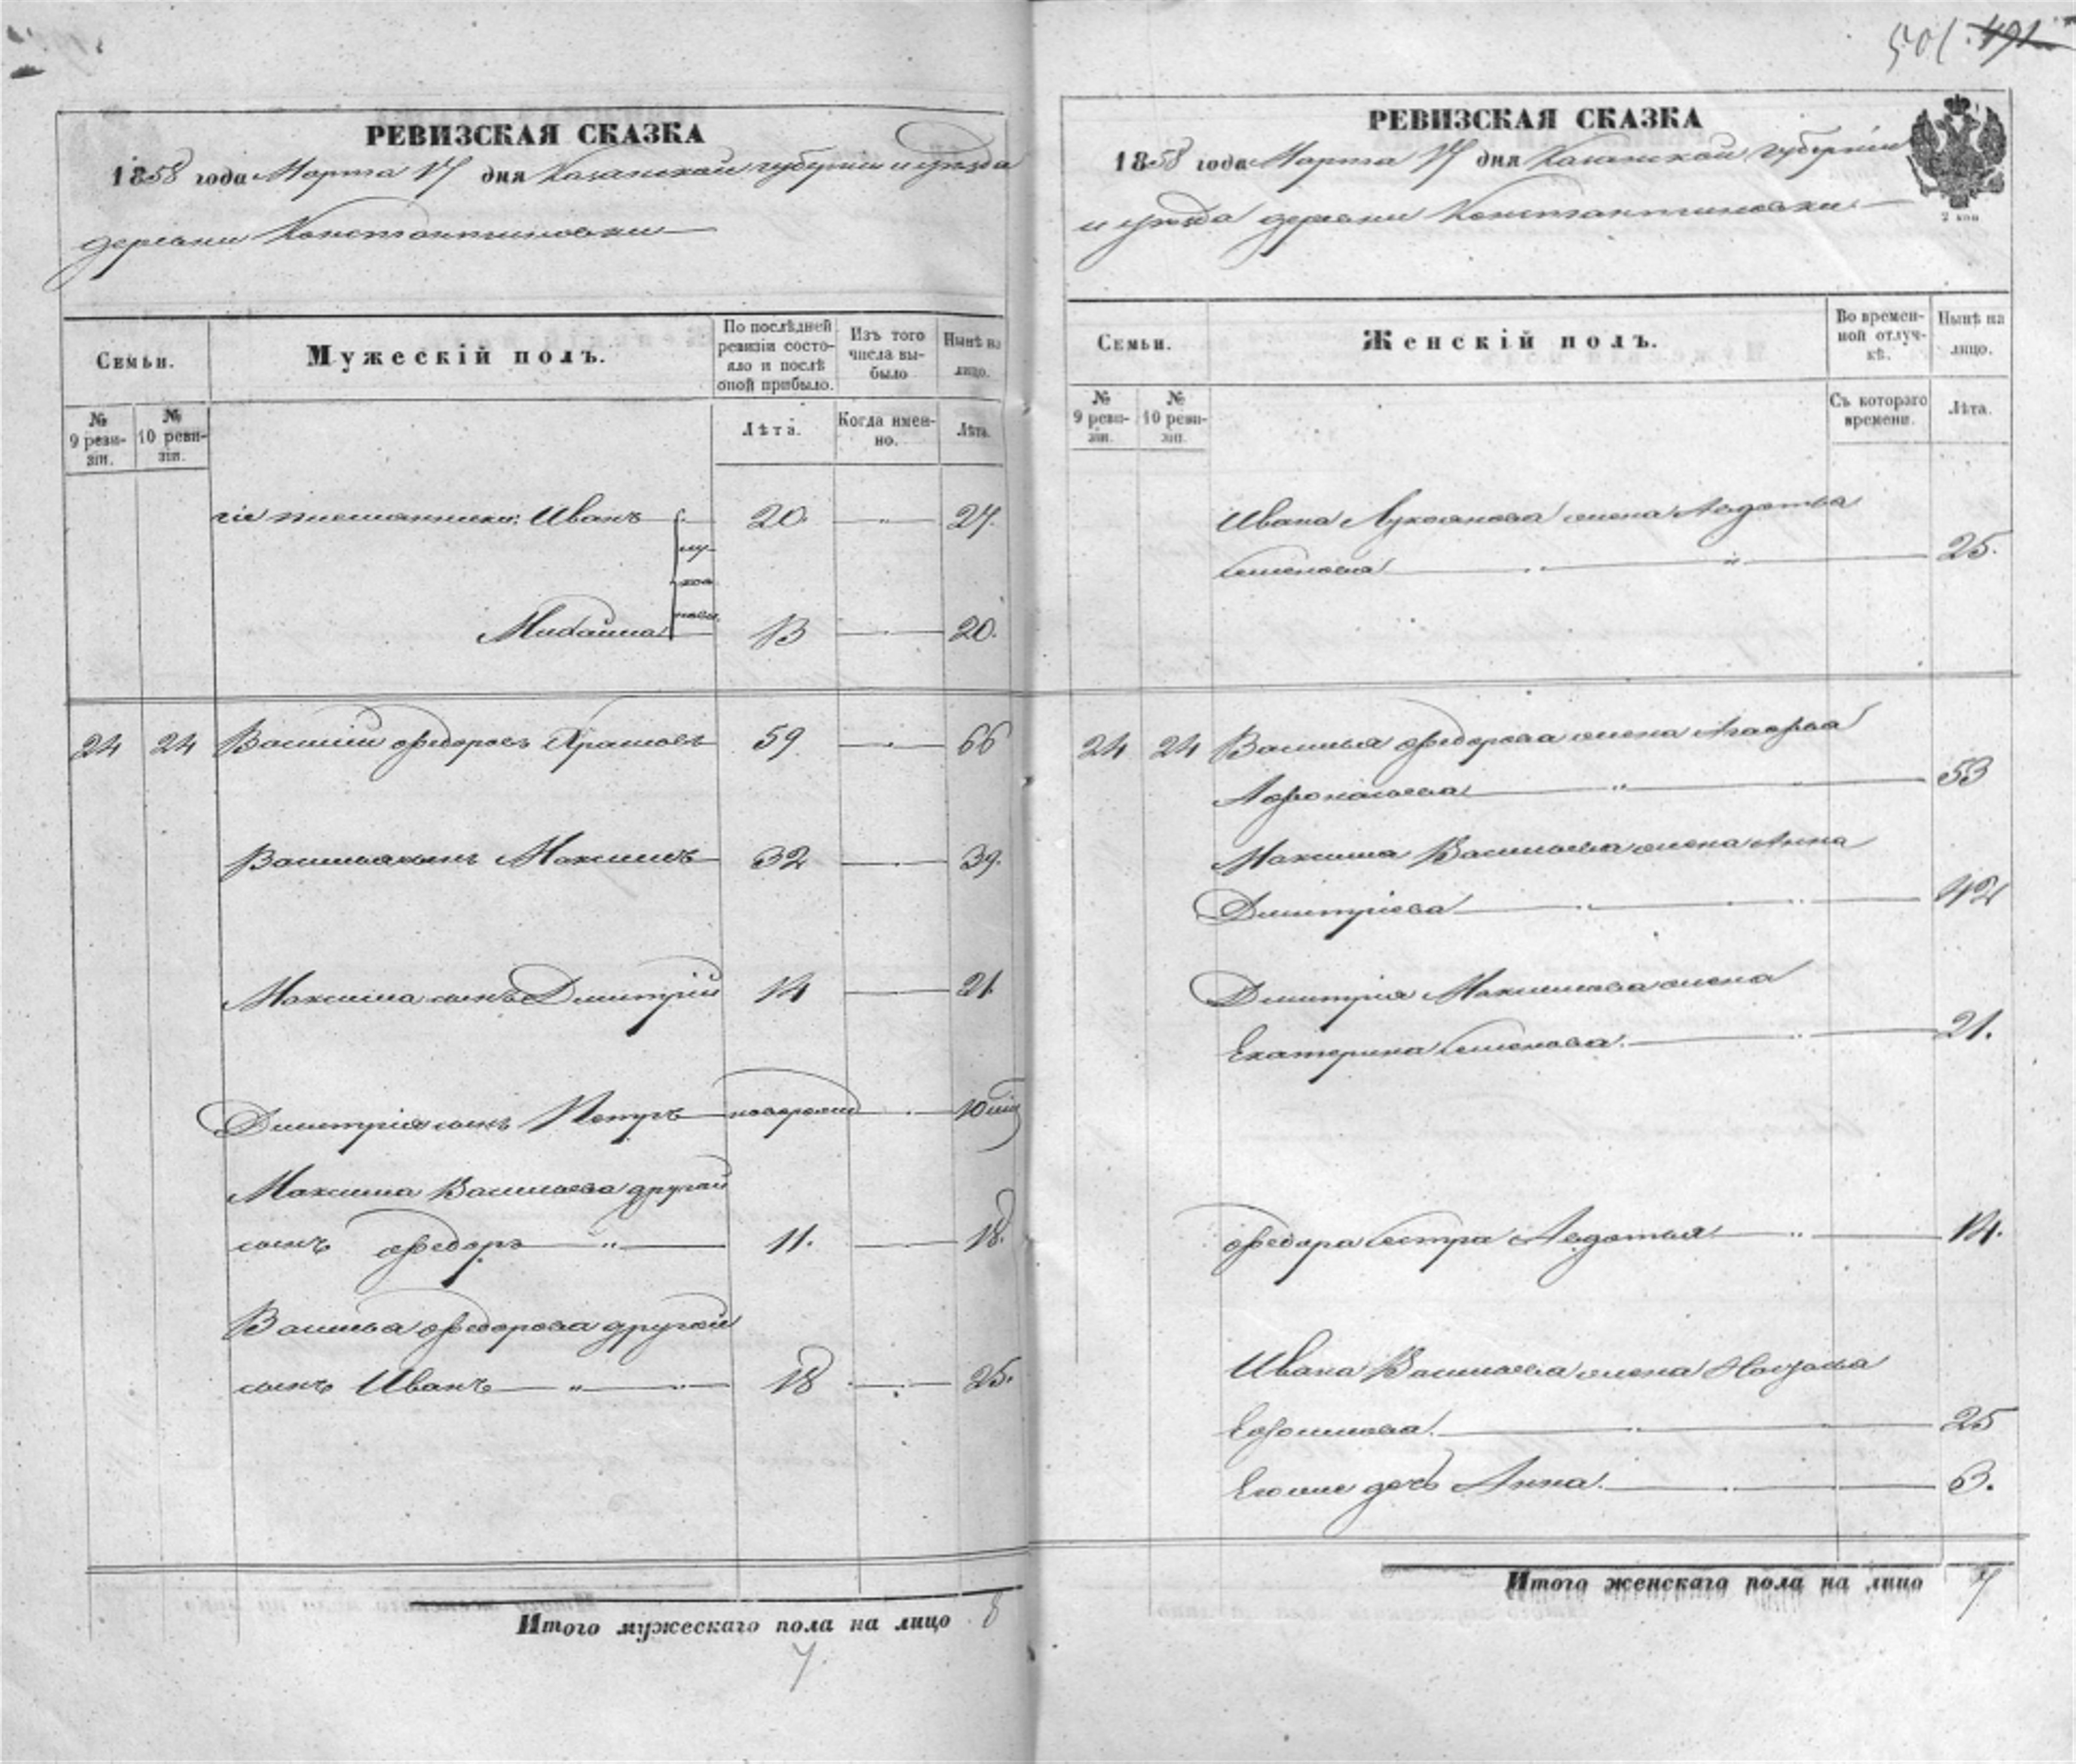 501. 491
РЕВИЗСКАЯ СКАЗКА
1858 года Марта 17 дня Казанской губерніи и уѣзда
деревни Константиновки
Семьи.
Мужескій полъ.
По послѣдней ревизіи состояло и послѣ оной прибыло.
Изъ того числа выбыло
Нынѣ на лицо.
№ 9 ревизіи.
№ 10 ревизіи.
Лѣта.
Когда именно.
Лѣта.
племянники: Иванъ 20. 27.
Лукояновы
Михаила 13 20.
24 24 Василій Федоровъ 59 66
Василья сынъ Максимъ 32 39.
Максима сынъ Дмитрій 14 21.
Дмитрія сынъ Петръ
Максима Васильева другой
сынъ Федоръ " 11. 18.
Васильа Федорова другой
сынъ Иванъ " 18 25.
Итого мужескаго пола на лицо 8
7
РЕВИЗСКАЯ СКАЗКА
2 коп
1858 года Марта 17 дня Казанской губерніи
и уѣзда деревни Константиновки
Семьи.
Женскій полъ.
Во временной отлучкѣ.
Нынѣ на лицо.
№ 9 ревизіи.
№ 10 ревизіи.
Съ котораго времени.
Лѣта.
Ивана Лукоянова жена Авдотья
Семенова " 25.
24 24 Василья Федорова жена Агафья
Афонасьева " 53
Максима Васильева жена Анна
Дмитріева 42
Дмитрія Максимова жена
Екатерина Семенова. 21.
Федора сестра Авдотья 14.
Ивана Васильева жена Настасья
Ефимова. 25
Ево же дочь Анна. 3.
Итого женскаго пола на лицо 7